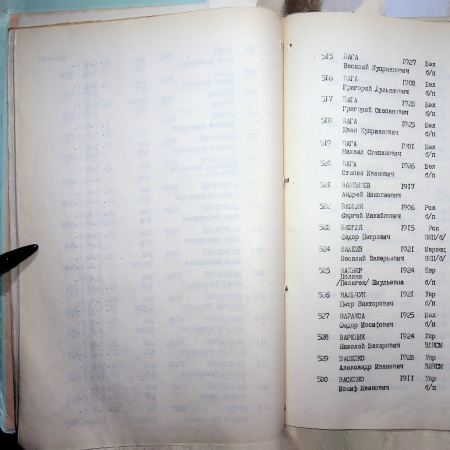 515 ВАГА 1927 Бел
Василий Куприянович б/п
516 ВАГА 1908 Бел
Григорий Лукьянович б/п
517 ВАГА 1928 Бел
Григорий Степанович б/п
518 ВАГА 1925 Бел
Иван Куприянович б/п
519 ВАГА 1901 Бел
Михаил Степанович б/п
520 ВАГА 1926 Бел
Степан Иванович б/п
521 1917
Андрей Николаевич
522 1906 Рос
Сергей Михайлович б/п
523 1915 Рос
Федор Петрович ВКП/б/
524 ВАЛЕЕВ 1921
Василий Валерьевич ВКП/б/
525 1924 Евр
Полина
/Пелагея/ Шмульевна б/п
526 ВАЛЬЧУК 1921 Укр
Петр Викторович б/п
527 ВАРАКСА 1925 Бел
Федор Иосифович б/п
528 ВАРЕНИК 1924 Укр
Николай Захарович ВЛКСМ
529 ВАСЕЙКО 1923 Укр
Александр Иванович ВЛКСМ
530 ВАСЕЙКО 1911 Укр
Иосиф Иванович б/п